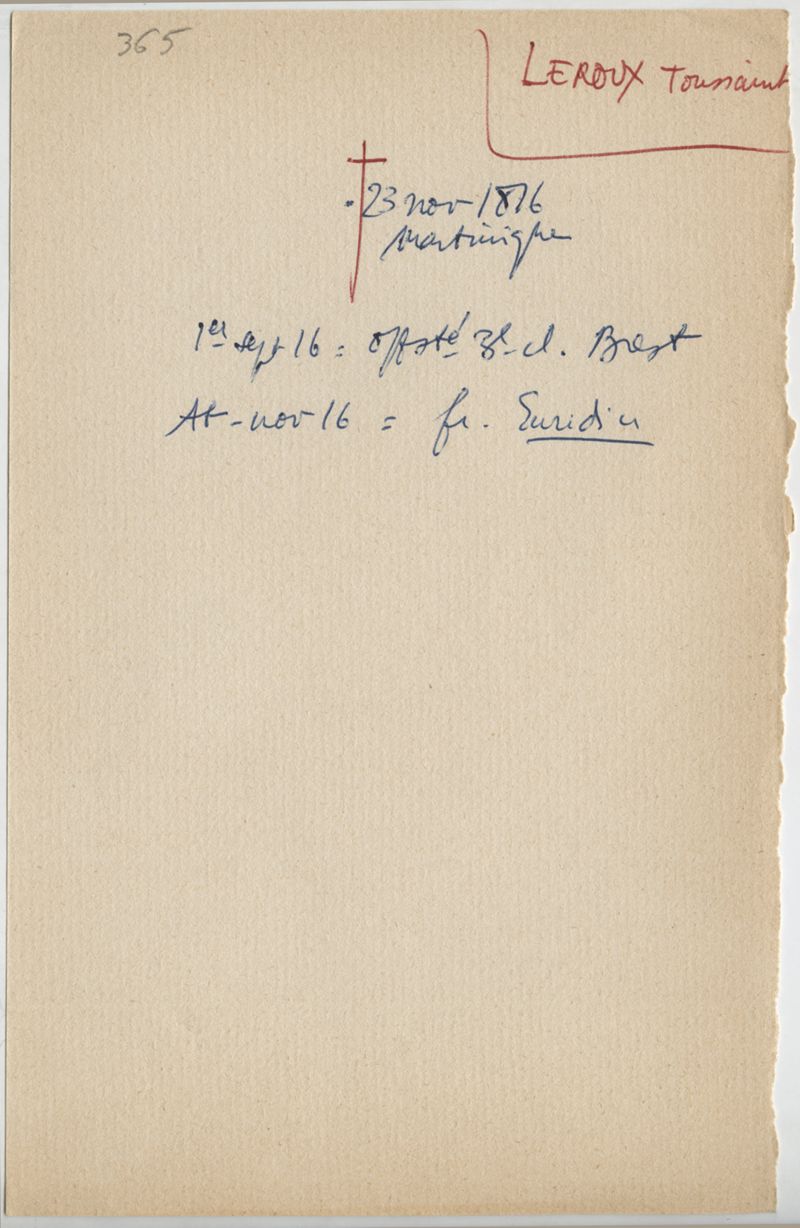 365
LEROUX Toussaint
23 nov 1816
Martinique
1er sept 16 = off sté 3e cl. Brest
At - nov 16 = fr. Euridice